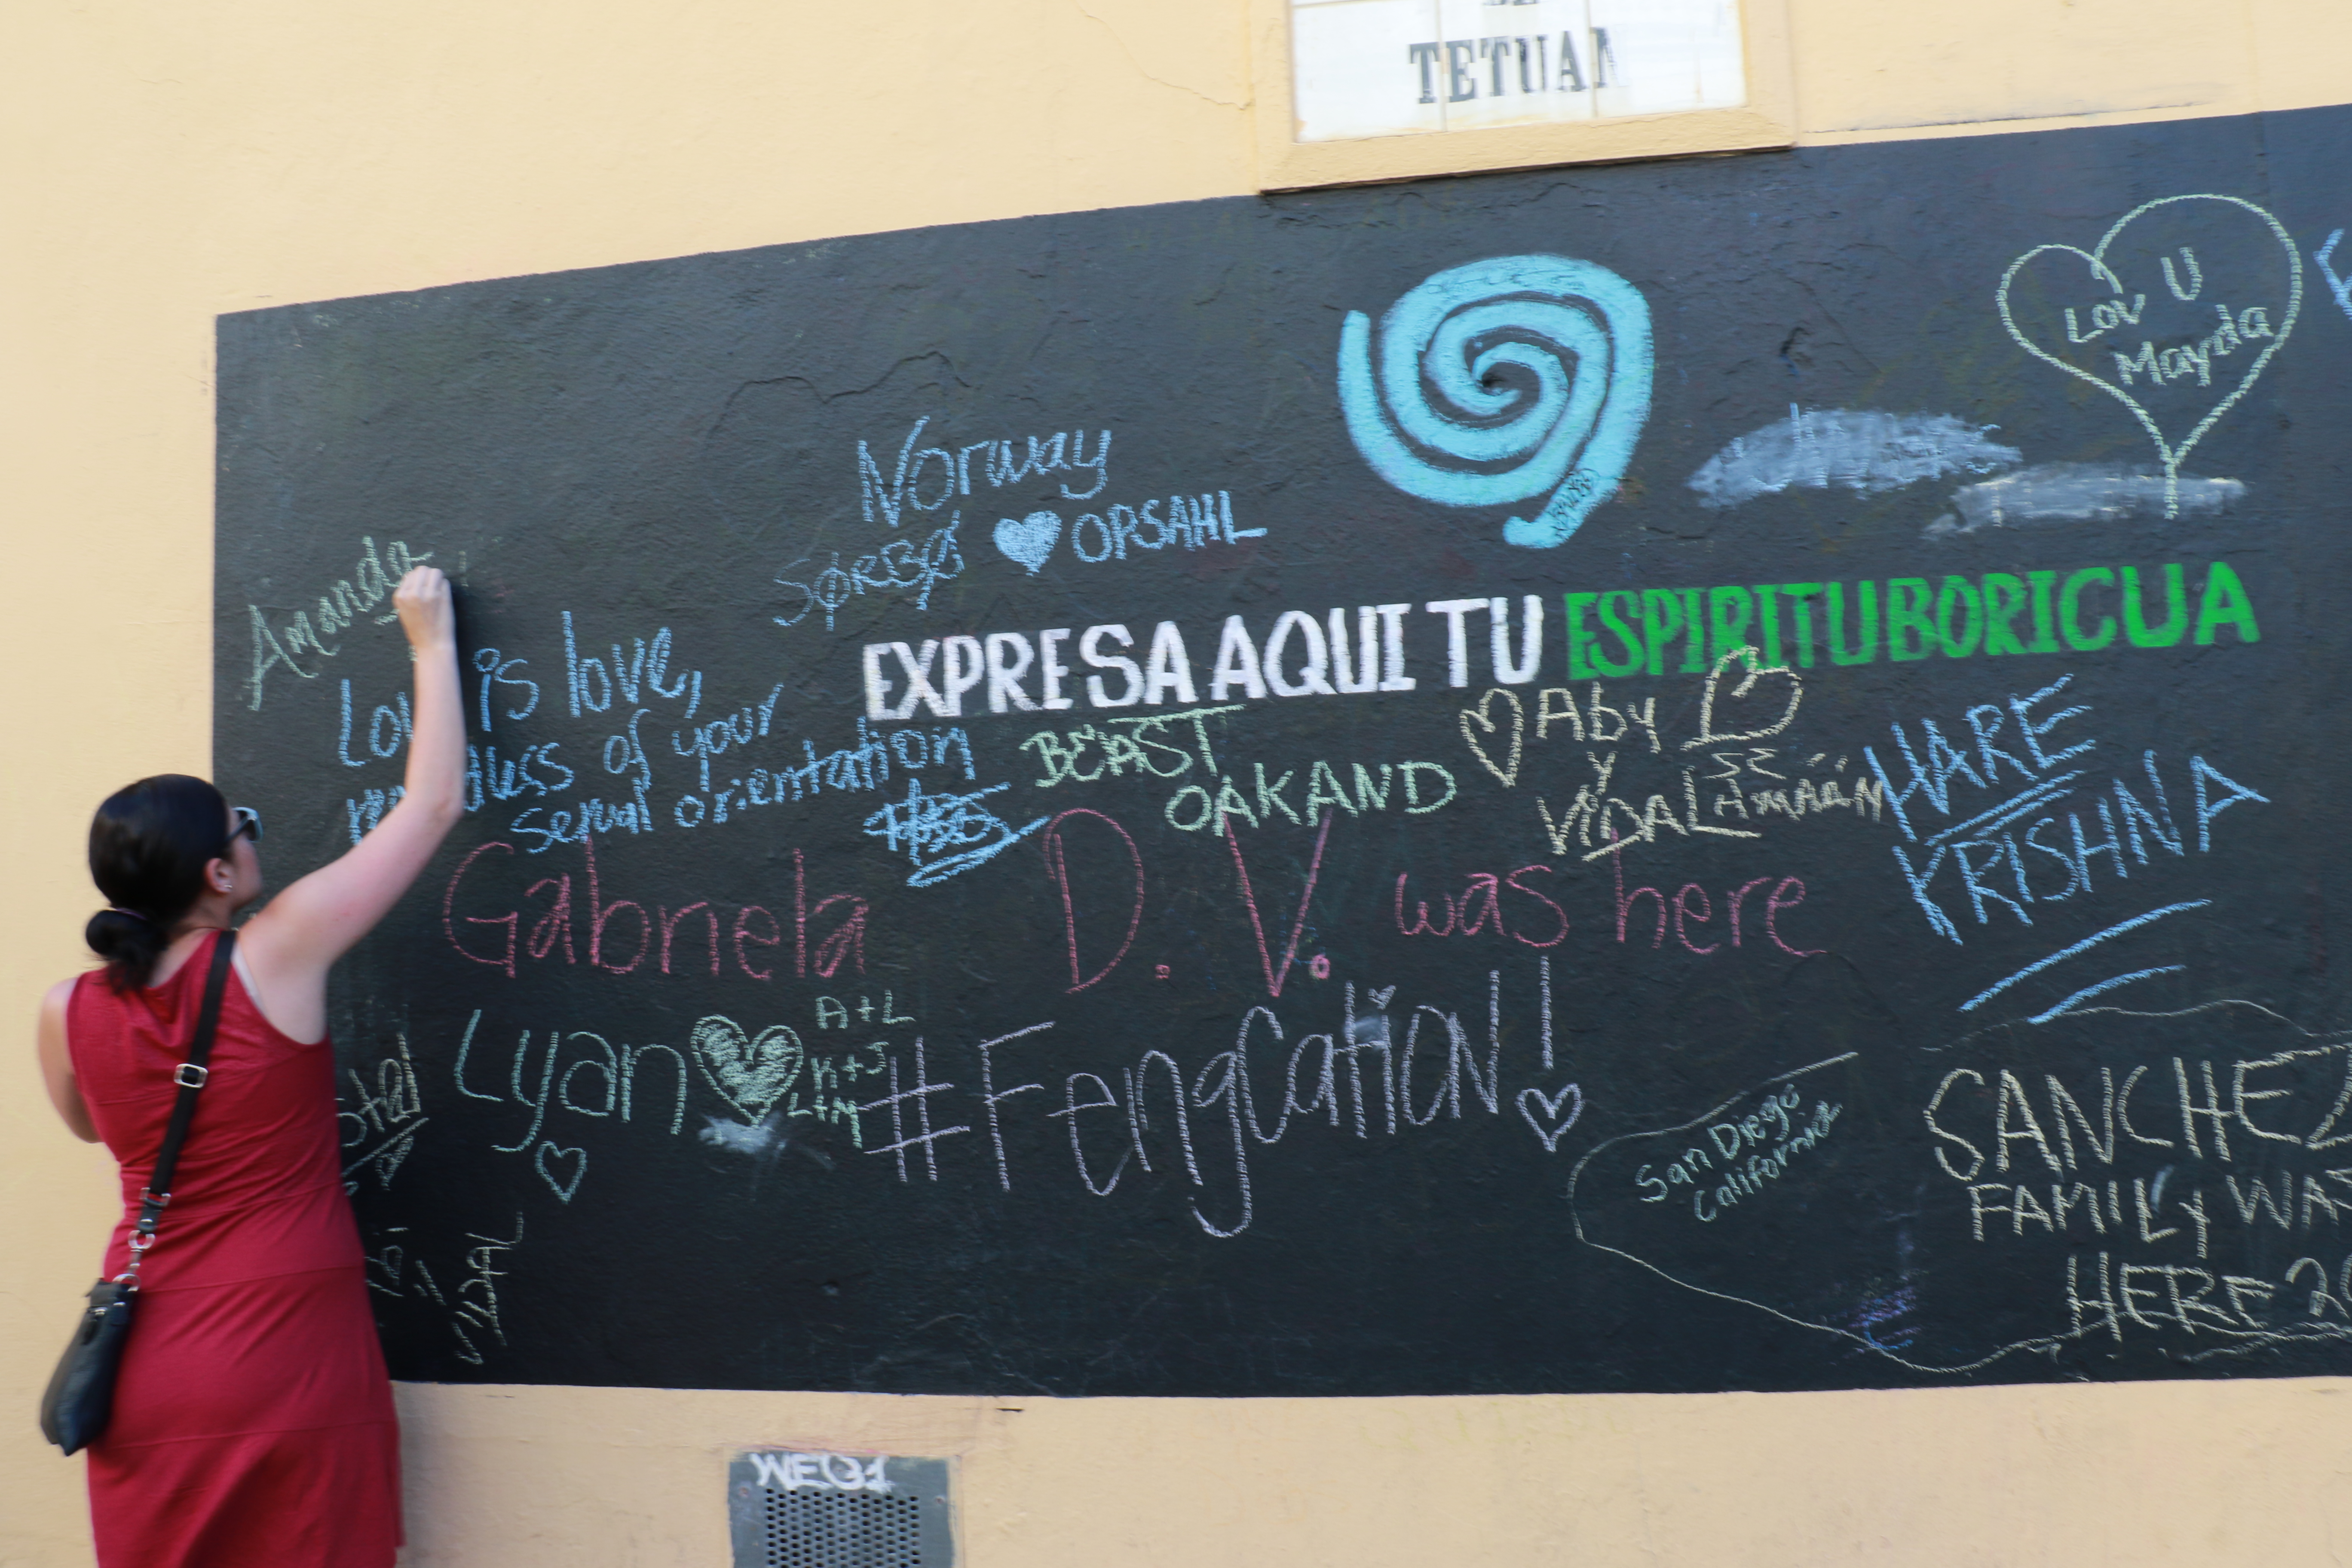 TETUAN
Lov U
Mayda
Norway
OPSAHL
Amanda
EXPRESA AQUI TU ESPIRITU BORICUA
is love,
of your
sexual orientation
BEAST
OAKAND
Aby
y
VIDAL
HARE
KRISHNA
Gabriela D. V. was here
Lyan
A+L
K+J
L+M
#Fengcation!
San Diego
California
SANCHEZ
FAMILY WAS
HERE
VIDAL
WEQ1